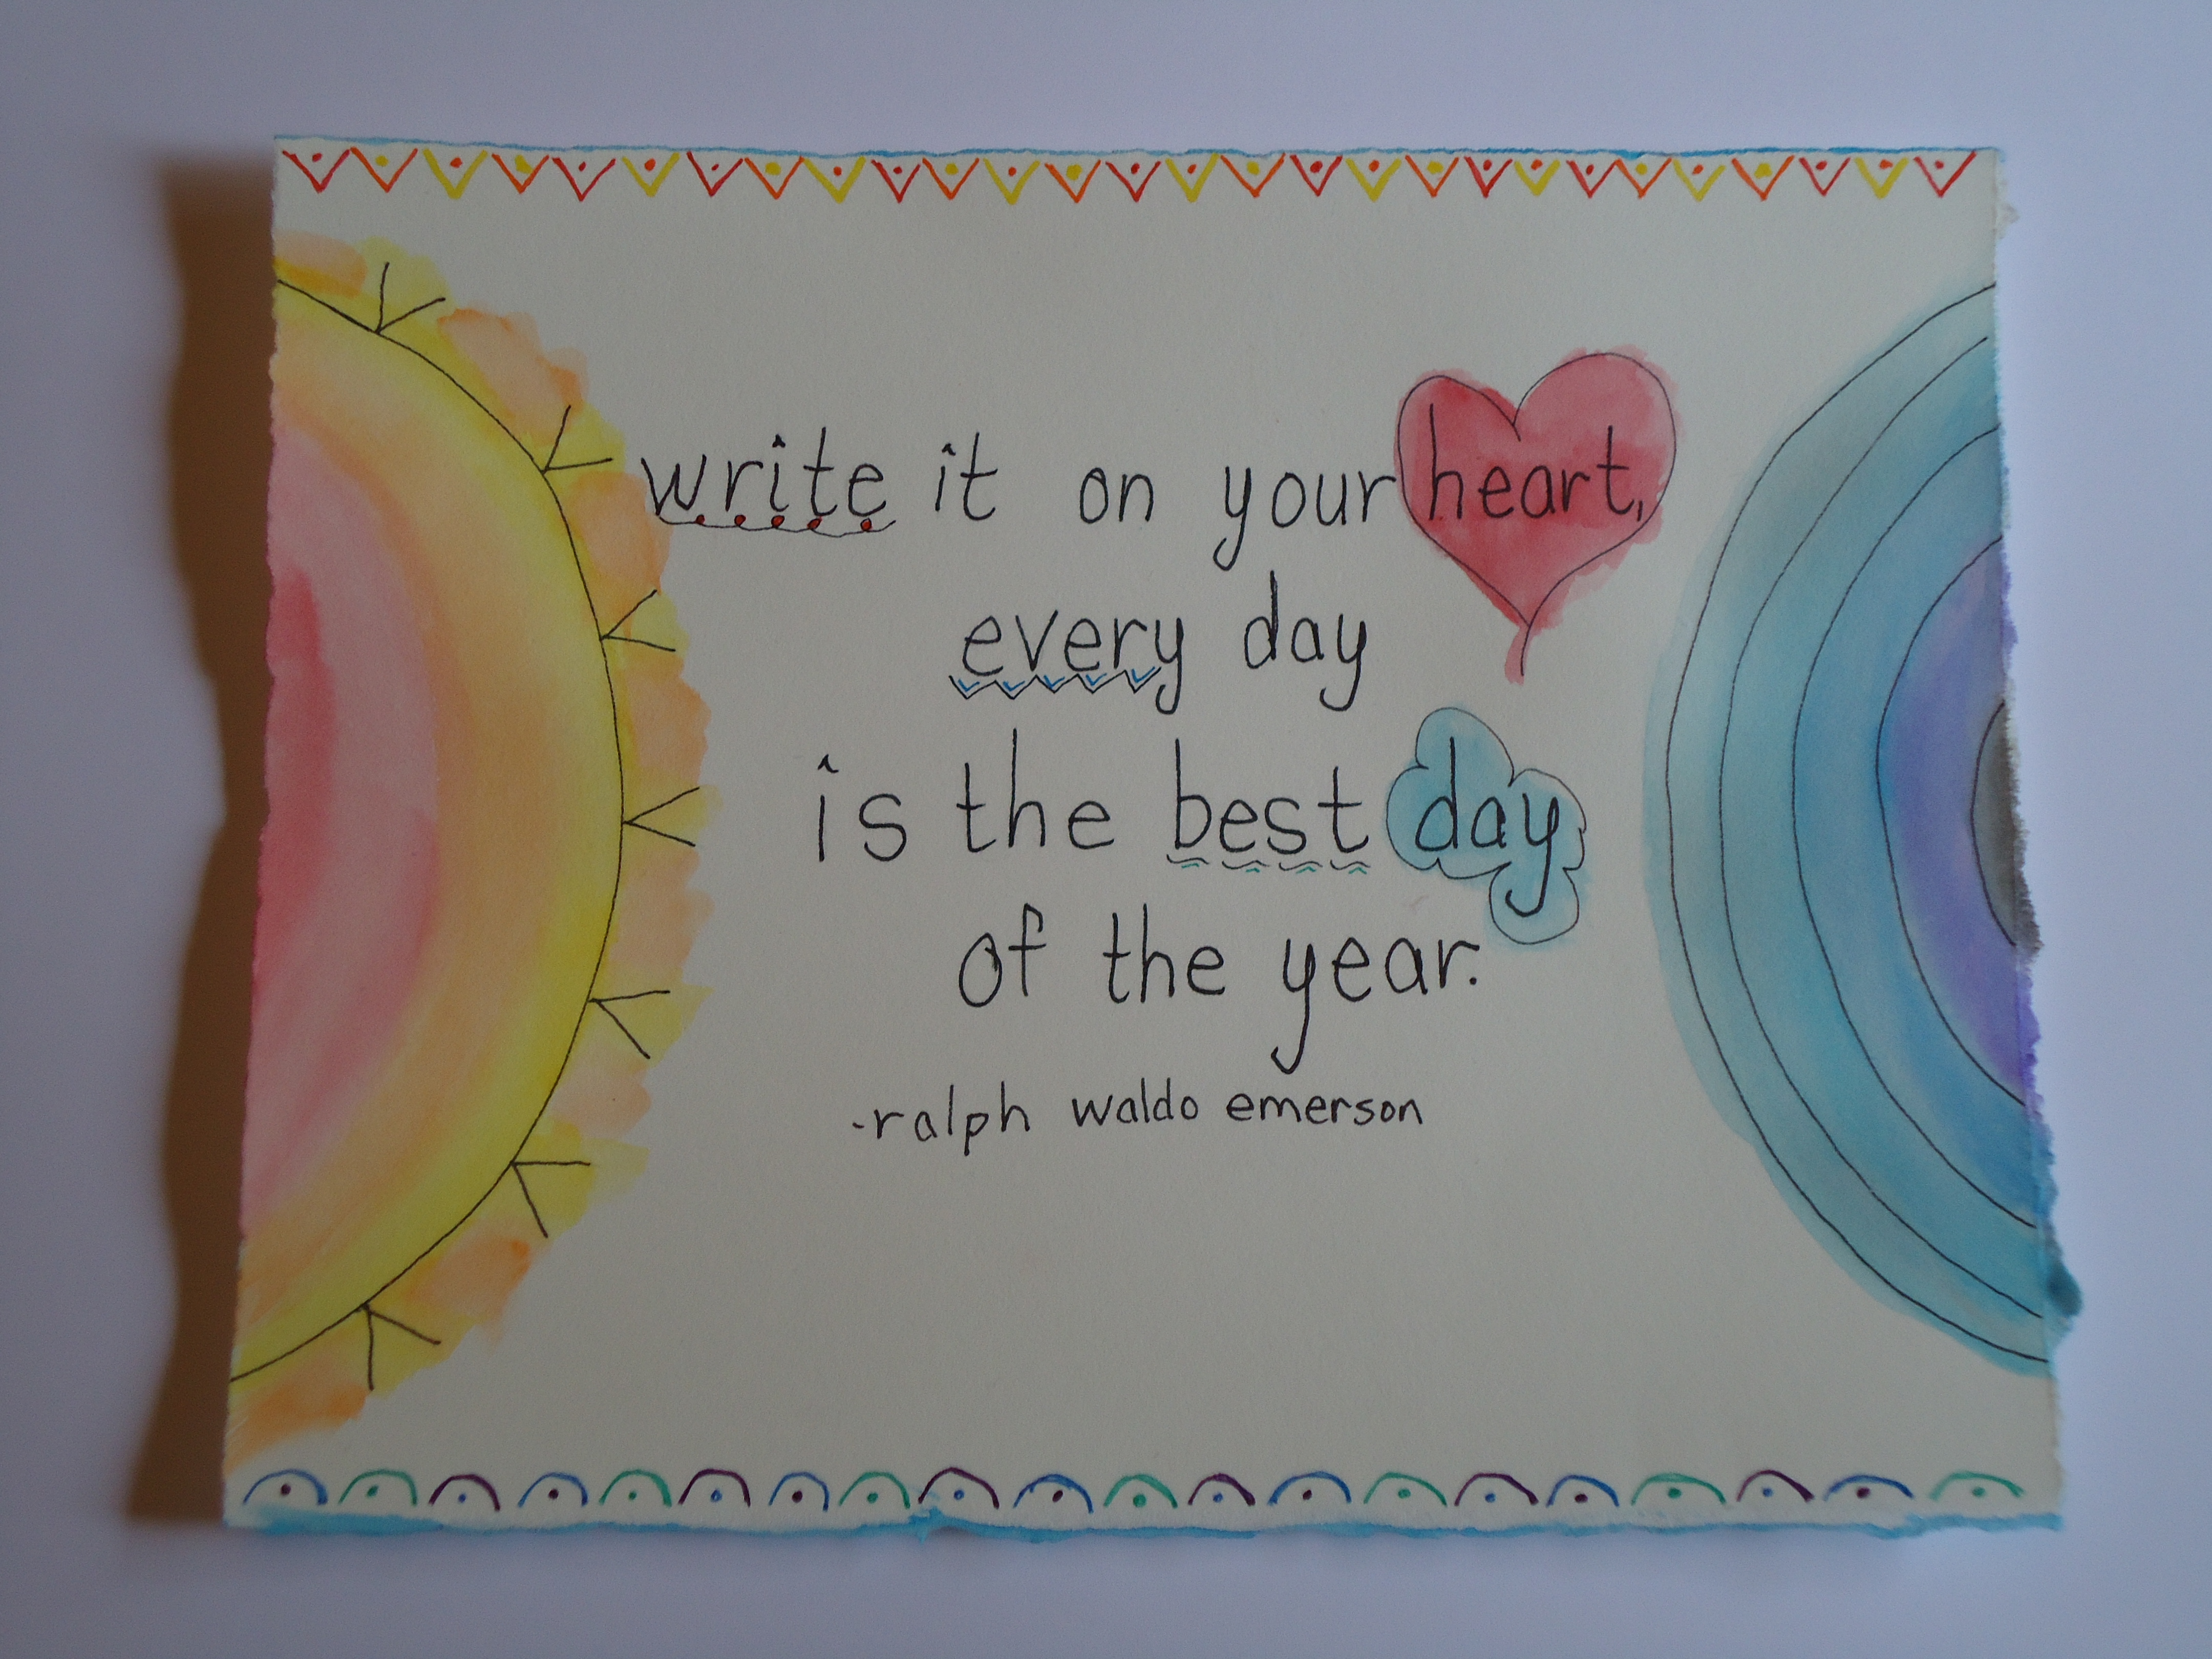 write it on your heart,
every day
is the best day
of the year.
-ralph waldo emerson